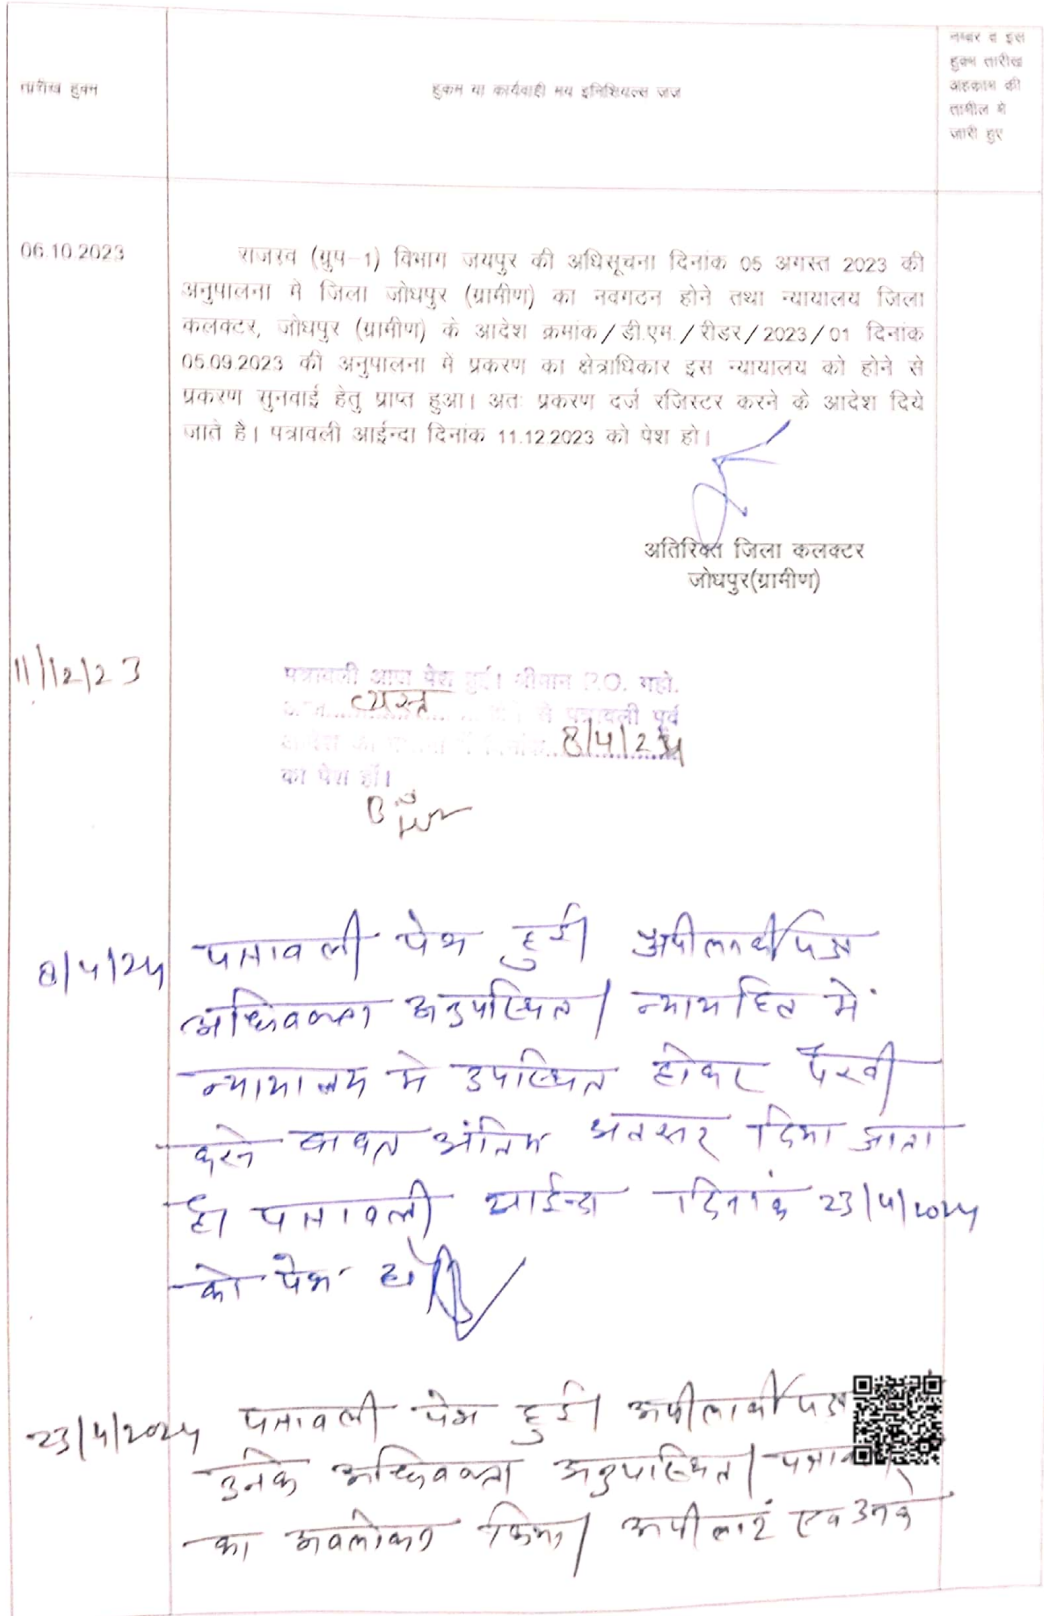 तारीख हुक्म
हुकम या कार्यवाही मय इनिशियल्स जज
नम्बर व इस
हुक्म तारीख
अहकाम की
तामील मे
जारी हुए
06.10.2023
राजस्व (ग्रुप-1) विभाग जयपुर की अधिसूचना दिनांक 05 अगस्त 2023 की
अनुपालना मे जिला जोधपुर (ग्रामीण) का नवगठन होने तथा न्यायालय जिला
कलक्टर, जोधपुर (ग्रामीण) के आदेश क्रमांक/डी.एम./रीडर/2023/01 दिनांक
05.09.2023 की अनुपालना मे प्रकरण का क्षेत्राधिकार इस न्यायालय को होने से
प्रकरण सुनवाई हेतु प्राप्त हुआ। अतः प्रकरण दर्ज रजिस्टर करने के आदेश दिये
जाते है। पत्रावली आईन्दा दिनांक 11.12.2023 को पेश हो।
अतिरिक्त जिला कलक्टर
जोधपुर(ग्रामीण)
11/12/23
पत्रावली आज पेश हुई। श्रीमान P.O. महो.
व्यस्त से पत्रावली पूर्व
8/4/24
को पेश हों।
8/4/24
पत्रावली पेश हुई। अपीलार्थी पक्ष
अधिवक्ता अनुपस्थित। न्यायहित में
न्यायालय मे उपस्थित होकर पैरवी
करने बाबत अंतिम अवसर दिया जाता
है। पत्रावली आईन्दा दिनांक 23/4/2024
को पेश हो।
23/4/2024
पत्रावली पेश हुई। अपीलार्थी पक्ष
उनके अधिवक्ता अनुपस्थित।
का अवलोकन किया। अपीलांट एवं उनके